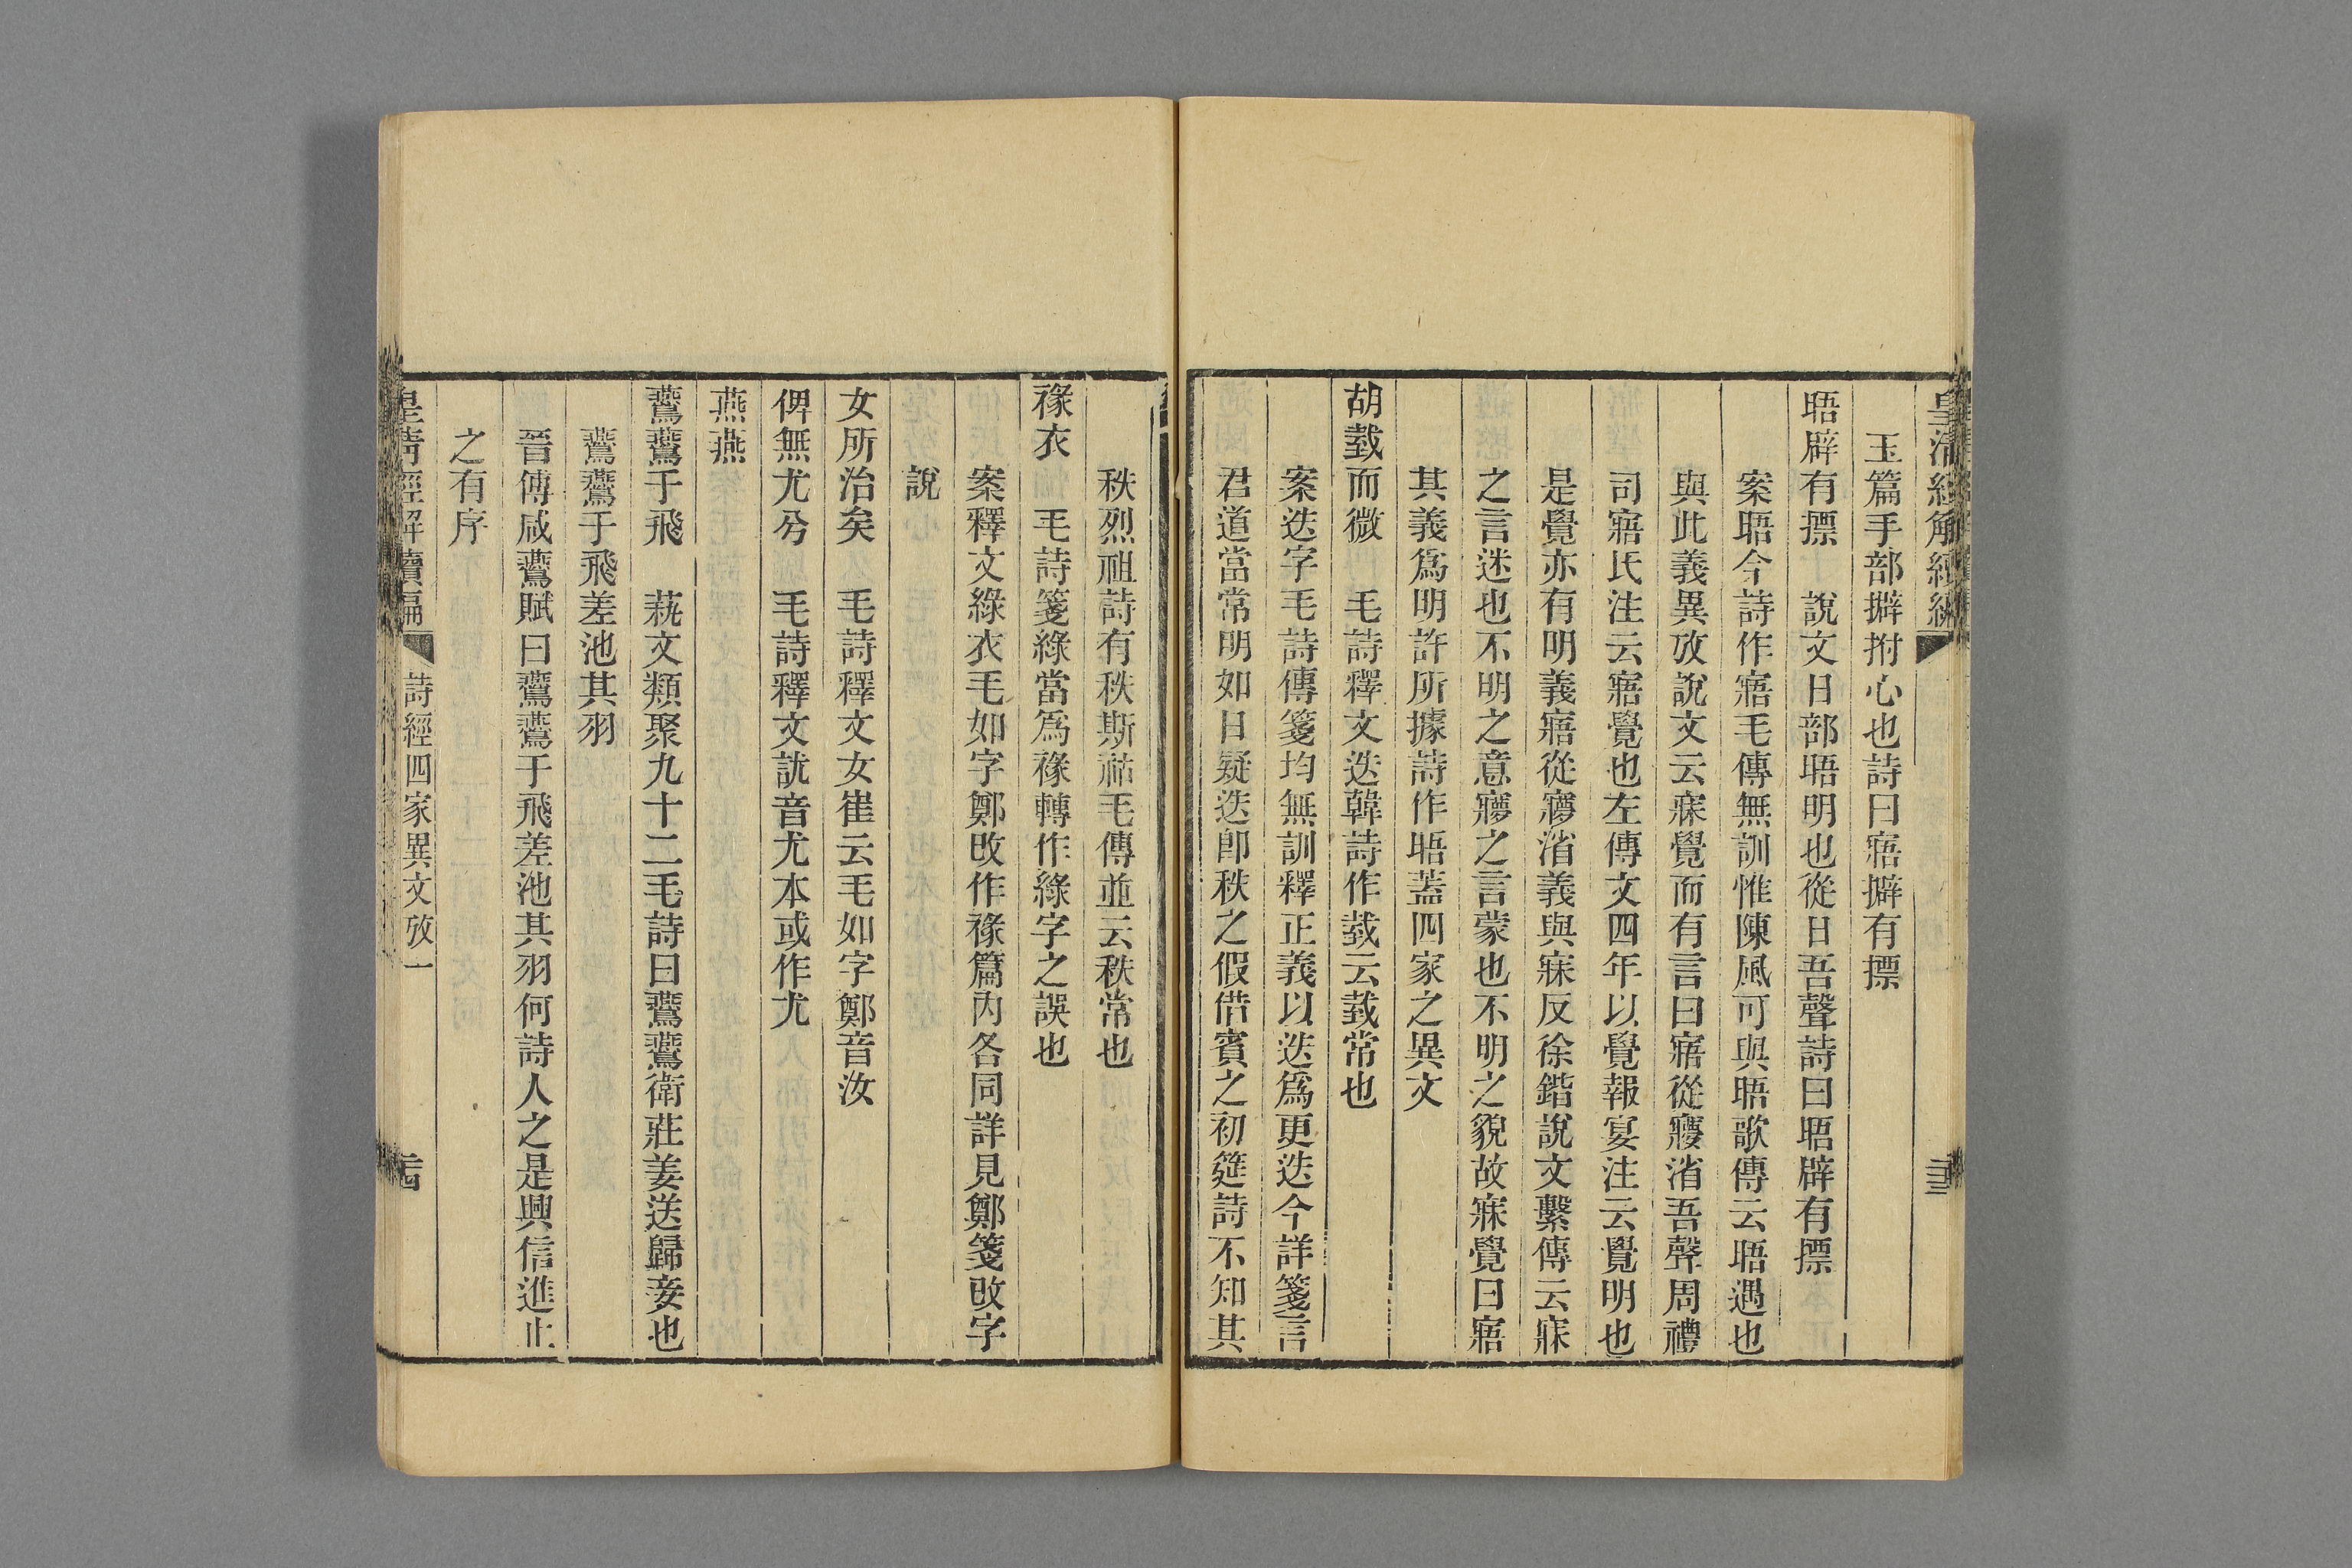 皇清經解續編
玉篇手部擗拊心也詩曰寤擗有摽
晤辟有摽　說文日部晤明也從日吾聲詩曰晤辟有摽
案晤今詩作寤毛傳無訓惟陳風可與晤歌傳云晤遇也
與此義異攷說文云寐覺而有言曰寤從㝱省吾聲周禮
司寤氏注云寤覺也左傳文四年以覺報宴注云覺明也
是覺亦有明義寤從㝱省義與寐反徐鍇說文繫傳云寐
之言迷也不明之意㝱之言蒙也不明之貌故寐覺曰寤
其義爲明許所據詩作晤蓋四家之異文
胡臷而微　毛詩釋文迭韓詩作臷云臷常也
案迭字毛詩傳箋均無訓釋正義以迭爲更迭今詳箋言
君道當常明如日疑迭卽秩之假借賓之初筵詩不知其
秩烈祖詩有秩斯祜毛傳並云秩常也
褖衣　毛詩箋綠當爲褖轉作綠字之誤也
案釋文綠衣毛如字鄭改作褖篇內各同詳見鄭箋改字
說
女所治矣　毛詩釋文女崔云毛如字鄭音汝
俾無尤兮　毛詩釋文訧音尤本或作尤
燕燕
鷰鷰于飛　藝文類聚九十二毛詩曰鷰鷰衛莊姜送歸妾也
鷰鷰于飛差池其羽
晉傅咸鷰賦曰鷰鷰于飛差池其羽何詩人之是興信進止
之有序
皇清經解續編　詩經四家異文攷一